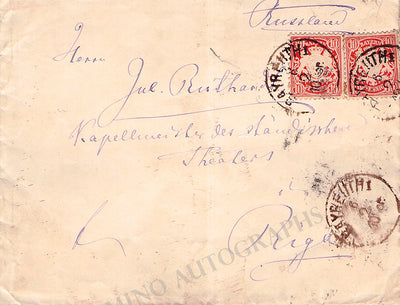 Russland
Herrn
Jul. Ruthardt
Kapellmeister des ständischen
Theaters
in
Riga
BAYREUTH 1
BAYERN
BAYREUTH 1
BAYREUTH 1
AUTOGRAPHS